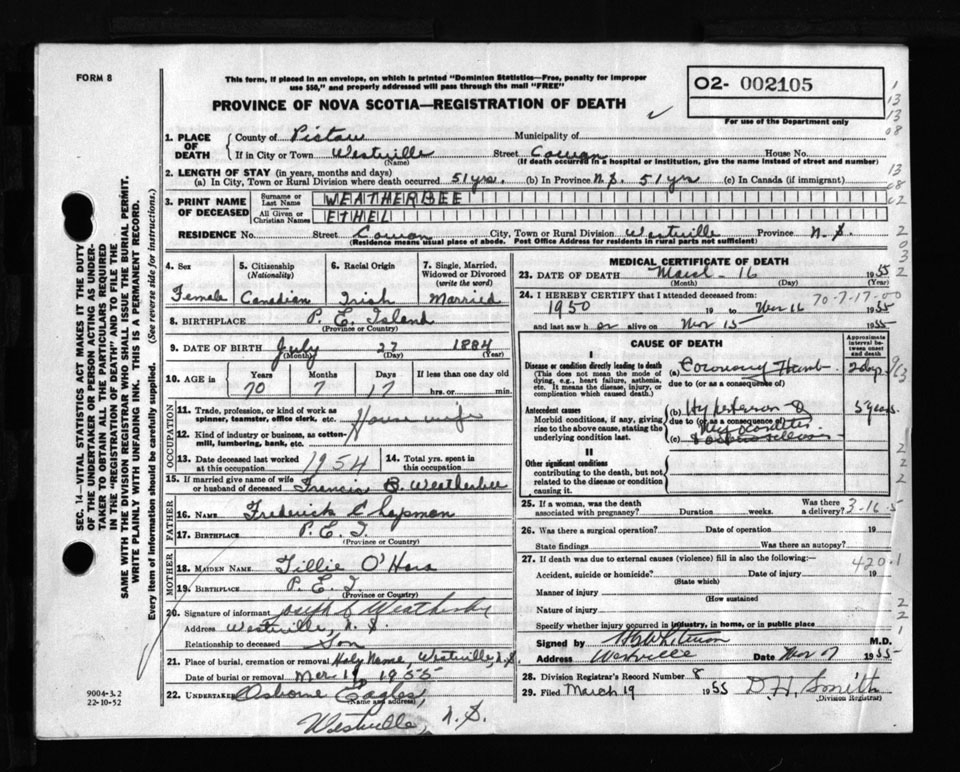 FORM 8
This form, if placed in an envelope, on which is printed "Dominion Statistics—Free, penalty for improper
use $50," and properly addressed will pass through the mail "FREE"
PROVINCE OF NOVA SCOTIA—REGISTRATION OF DEATH
02- 002105
For use of the Department only
1. PLACE OF DEATH County of Pictou Municipality of
If in City or Town Westville (Name) Street Cowan House No.
(If death occurred in a hospital or institution, give the name instead of street and number)
2. LENGTH OF STAY (in years, months and days)
(a) In City, Town or Rural Division where death occurred 51 yrs. (b) In Province N.S. 51 yrs (c) In Canada (if immigrant)
3. PRINT NAME OF DECEASED Surname or Last Name WEATHERBEE
All Given or Christian Names ETHEL
RESIDENCE No. Street Cowan City, Town or Rural Division Westville Province N.S.
(Residence means usual place of abode. Post Office Address for residents in rural parts not sufficient)
4. Sex Female
5. Citizenship (Nationality) Canadian
6. Racial Origin Irish
7. Single, Married, Widowed or Divorced (write the word) Married
8. BIRTHPLACE P. E. Island
(Province or Country)
9. DATE OF BIRTH July 27 1884
(Month) (Day) (Year)
10. AGE in Years Months Days If less than one day
70 7 17 hrs. or min.
OCCUPATION
11. Trade, profession, or kind of work as spinner, teamster, office clerk, etc. House wife
12. Kind of industry or business, as cotton-mill, lumbering, bank, etc.
13. Date deceased last worked at this occupation 1954
14. Total yrs. spent in this occupation
15. If married give name of wife or husband of deceased Francis B. Weatherbee
FATHER
16. NAME Frederick Chapman
17. BIRTHPLACE P.E.I.
(Province or Country)
MOTHER
18. MAIDEN NAME Tillie O'Hara
19. BIRTHPLACE P.E.I.
(Province or Country)
20. Signature of informant Joseph Weatherby
Address Westville, N.S.
Relationship to deceased Son
21. Place of burial, cremation or removal Holy Name, Westville, N.S.
Date of burial or removal Mar. 19 1955
22. UNDERTAKER Osborne Eagles,
(Name and address)
Westville, N.S.
MEDICAL CERTIFICATE OF DEATH
23. DATE OF DEATH March - 16 1955
(Month) (Day)
24. I HEREBY CERTIFY that I attended deceased from: 70-7-17-00
1950 19 to Mar 16 1955
and last saw h er alive on Mar 15 1955
CAUSE OF DEATH
Approximate interval between onset and death
I
Disease or condition directly leading to death
(This does not mean the mode of dying, e.g., heart failure, asthenia, etc. It means the disease, injury, or complication which caused death.)
(a) Coronary Thomb 2 days
due to (or as a consequence of)
Antecedent causes
Morbid conditions, if any, giving rise to the above cause, stating the underlying condition last.
(b) Hypertension & 5 years
due to (or as a consequence of)
Myocarditis
(c)
II
Other significant conditions
contributing to the death, but not related to the disease or condition causing it.
25. If a woman, was the death associated with pregnancy? Duration weeks. Was there a delivery? 3-16-5
26. Was there a surgical operation? Date of operation 19
State findings Was there an autopsy?
27. If death was due to external causes (violence) fill in also the following:— 420.1
Accident, suicide or homicide? Date of injury 19
(State which)
Manner of injury
(How sustained
Nature of injury
Specify whether injury occurred in industry, in home, or in public place
Signed by M.D.
Address Westville Date 1955
28. Division Registrar's Record Number 8
29. Filed March 19 1955 D.H. Smith
(Division Registrar)
SEC. 14—VITAL STATISTICS ACT MAKES IT THE DUTY
OF THE UNDERTAKER OR PERSON ACTING AS UNDER-
TAKER TO OBTAIN ALL THE PARTICULARS REQUIRED
IN THE "REGISTRATION OF DEATH" AND TO FILE THE
SAME WITH THE DIVISION REGISTRAR WHO SHALL ISSUE THE BURIAL PERMIT.
WRITE PLAINLY WITH UNFADING INK. THIS IS A PERMANENT RECORD.
Every item of information should be carefully supplied. (See reverse side for instructions.)
9004-3.2
22-10-52